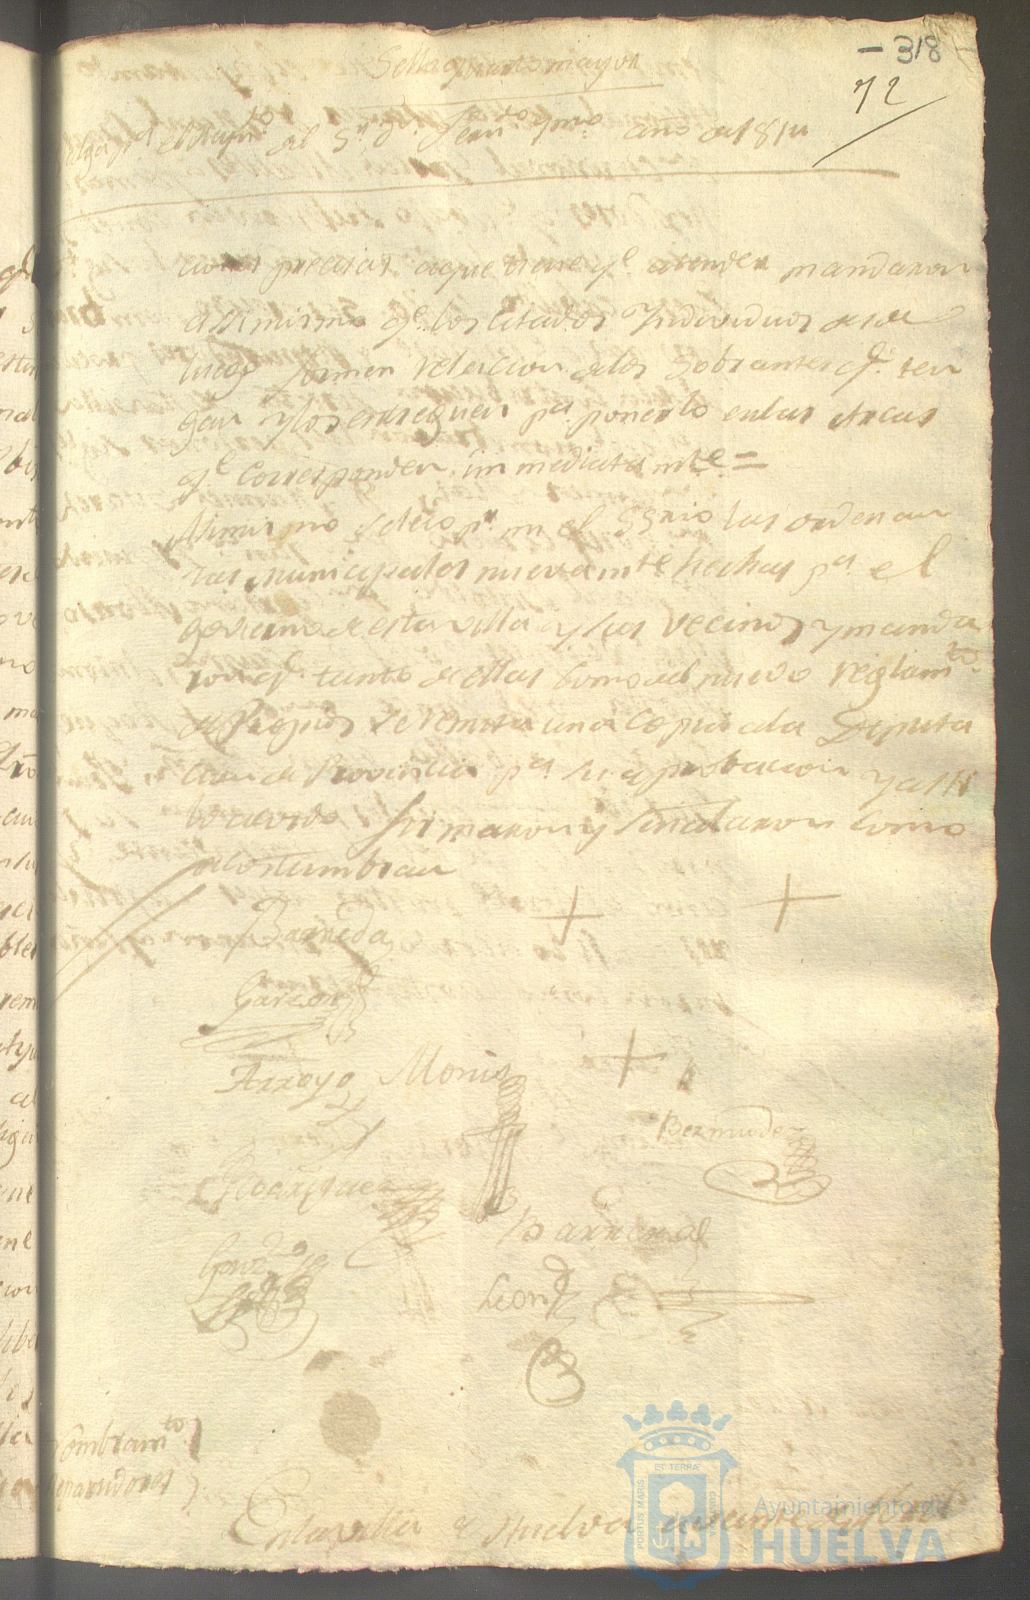 - 318 -
72
Sello quarto mayor
valga pa. el Reyndo. del Sr. Dn. Ferndo. 7mo. año de 1814
ciones precisas aque tiene qe. atender mandaron
asimismo qe. los citados Individuos desde
luego formen relacion delos Sobrantes qe. ten
gan y los entreguen pa. ponerlo enlas Arcas
qe. corresponden immediatamte. =
Asimismo se leio pr. mi el SSrio las ordenan
zas municipales nuevamte hechas pa. el
govierno de esta villa y sus vecinos y manda
ron qe. tanto de ellas como del nuevo reglamto.
de Propios se remita una copia ala Diputa
cion de Provincia pa. su aprobacion y asi
lo acordo firmaron y señalaron como
acostumbran
Barreda
Garzon
Arroyo Monis
Bermudez
Rodriguez
Barrera
Gonz
Leon
Nombramto.
repartidores
Enla villa de Huelva a veinte
Ayuntamiento de
HUELVA
PORTUS MARIS
EST TERRAE
CUSTODIA